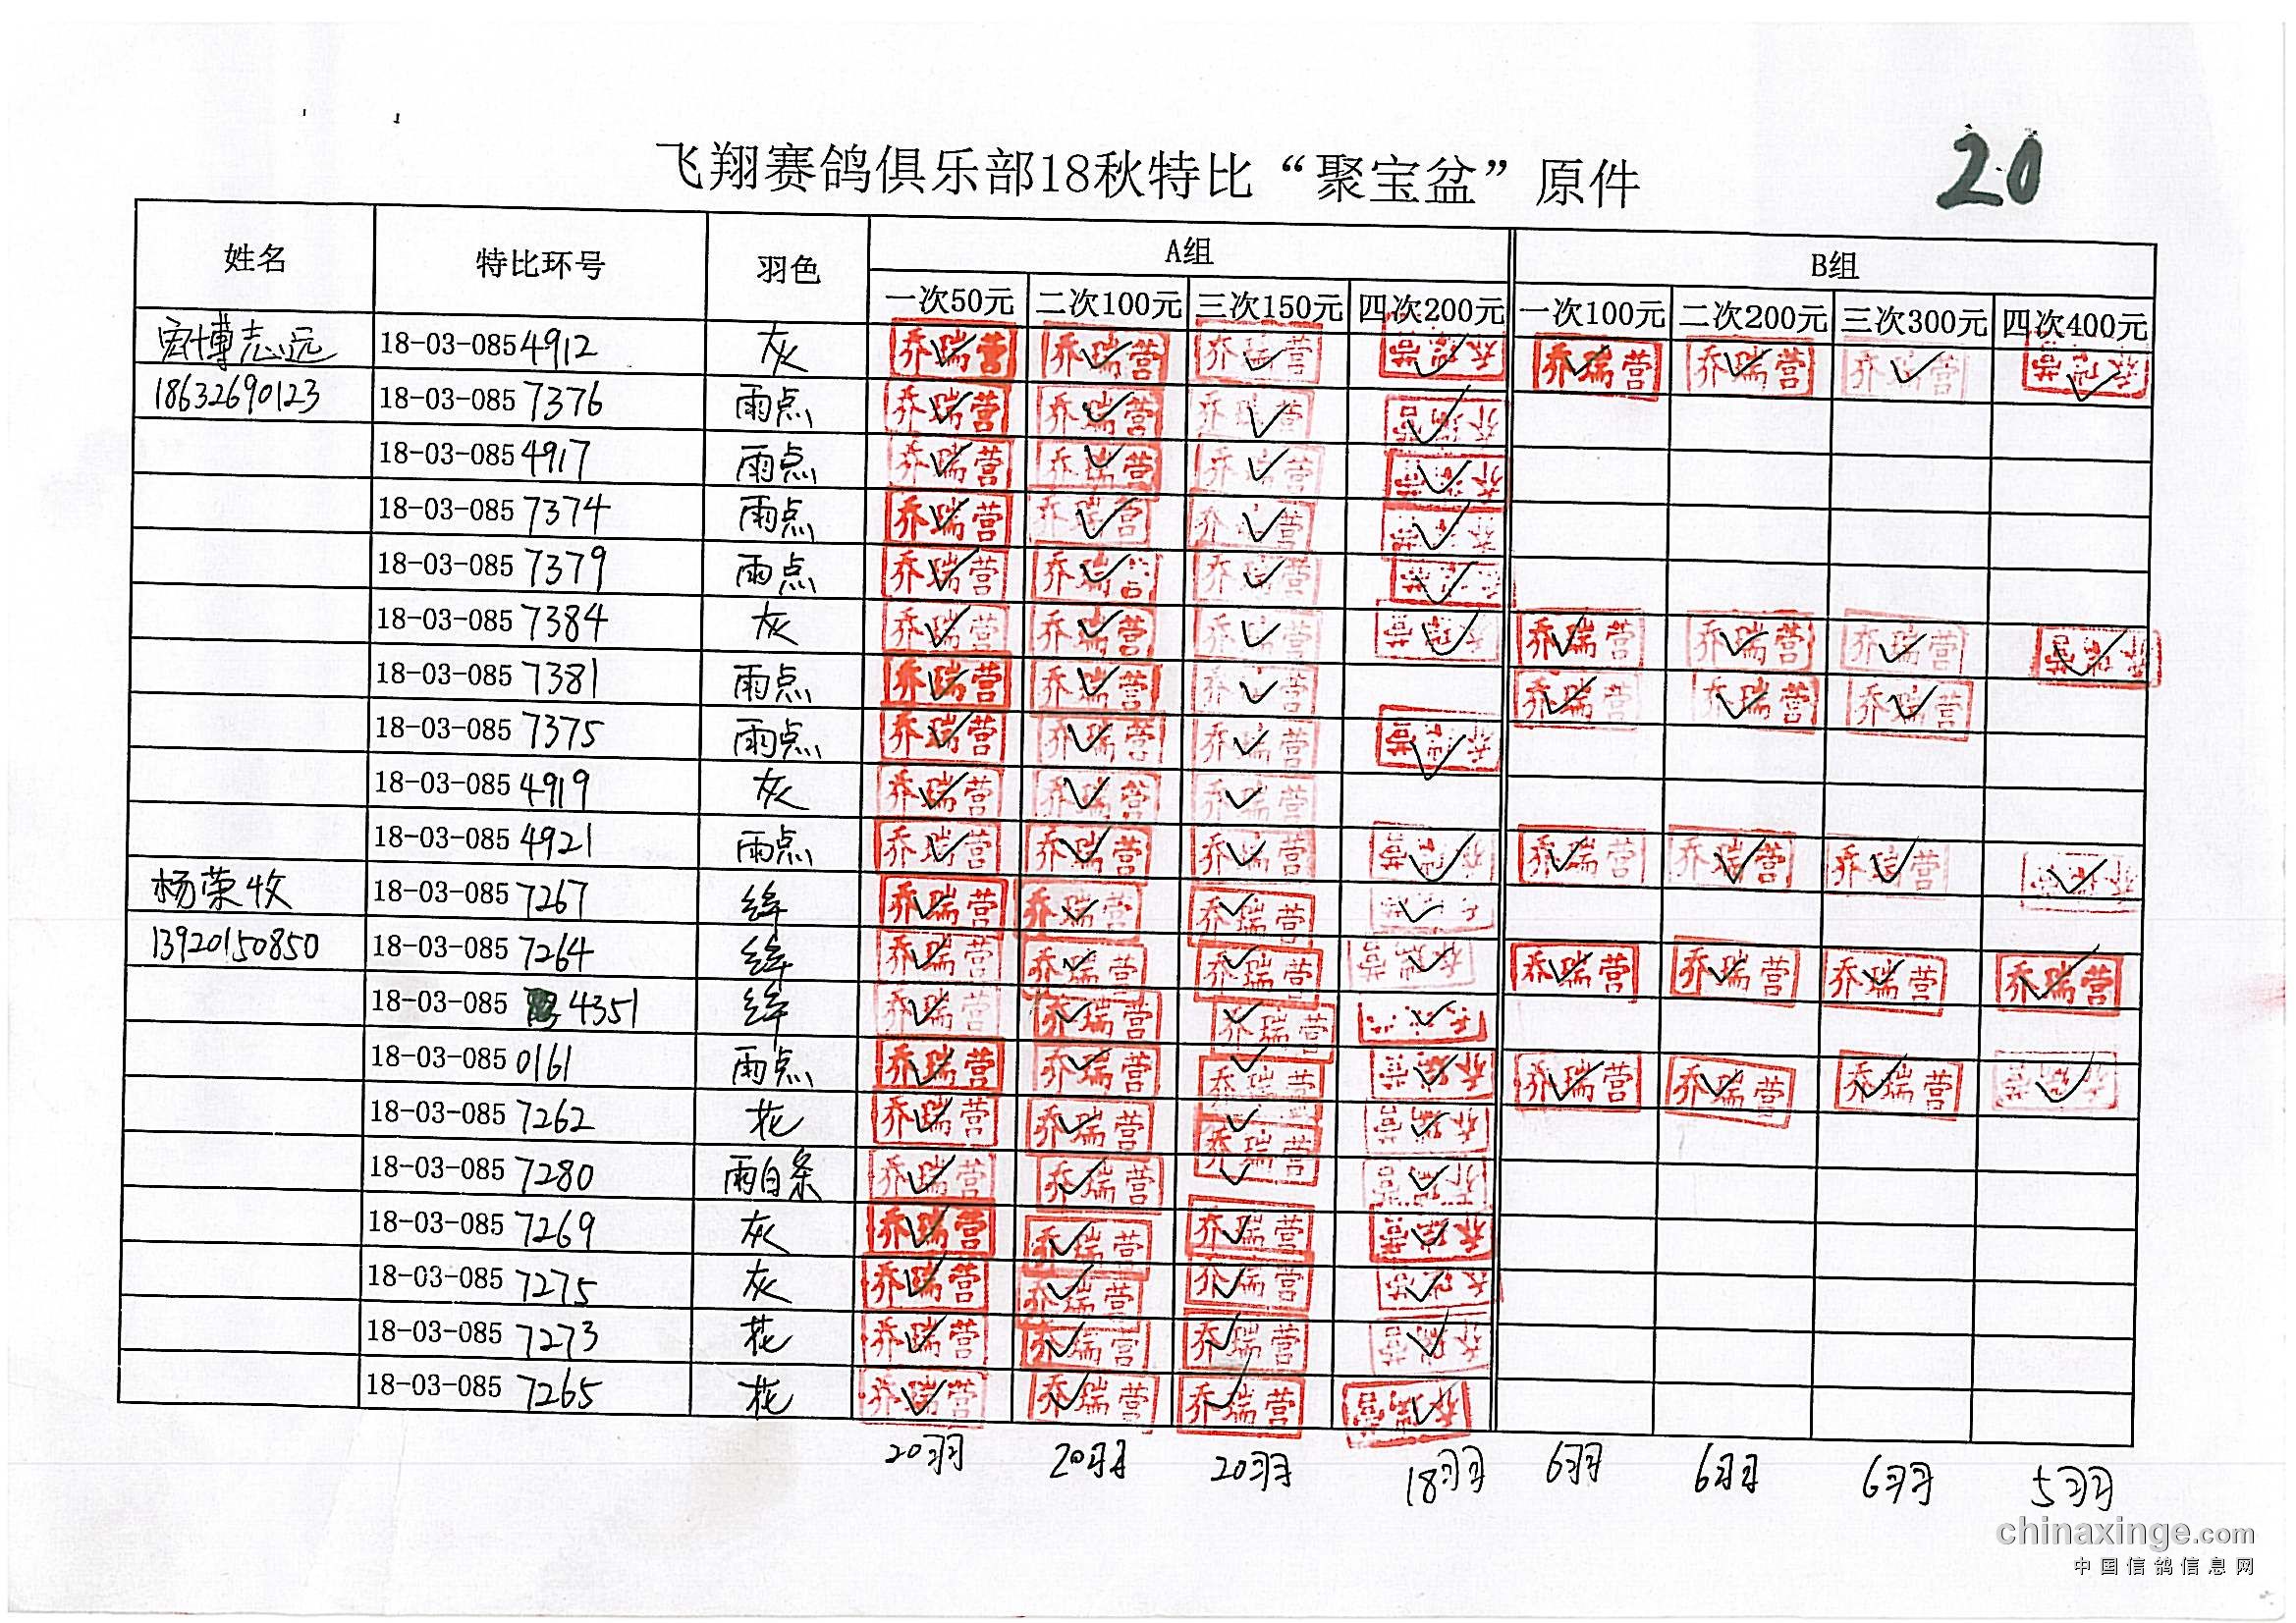 飞翔赛鸽俱乐部18秋特比“聚宝盆”原件
20
姓名 特比环号 羽色 A组 B组
一次50元 二次100元 三次150元 四次200元 一次100元 二次200元 三次300元 四次400元
宏博志远 18-03-085 4912 灰 乔瑞营 乔瑞营 乔瑞营 乔瑞营 乔瑞营 乔瑞营 乔瑞营 乔瑞营
18632690123 18-03-085 7376 雨点 乔瑞营 乔瑞营 乔瑞营 乔瑞营
18-03-085 4917 雨点 乔瑞营 乔瑞营 乔瑞营 乔瑞营
18-03-085 7374 雨点 乔瑞营 乔瑞营 乔瑞营 乔瑞营
18-03-085 7379 雨点 乔瑞营 乔瑞营 乔瑞营 乔瑞营
18-03-085 7384 灰 乔瑞营 乔瑞营 乔瑞营 乔瑞营 乔瑞营 乔瑞营 乔瑞营 乔瑞营
18-03-085 7381 雨点 乔瑞营 乔瑞营 乔瑞营 乔瑞营 乔瑞营 乔瑞营
18-03-085 7375 雨点 乔瑞营 乔瑞营 乔瑞营 乔瑞营
18-03-085 4919 灰 乔瑞营 乔瑞营 乔瑞营
18-03-085 4921 雨点 乔瑞营 乔瑞营 乔瑞营 乔瑞营 乔瑞营 乔瑞营 乔瑞营 乔瑞营
杨荣牧 18-03-085 7267 绛 乔瑞营 乔瑞营 乔瑞营 乔瑞营
13920150850 18-03-085 7264 绛 乔瑞营 乔瑞营 乔瑞营 乔瑞营 乔瑞营 乔瑞营 乔瑞营 乔瑞营
18-03-085 4351 绛 乔瑞营 乔瑞营 乔瑞营 乔瑞营
18-03-085 0161 雨点 乔瑞营 乔瑞营 乔瑞营 乔瑞营 乔瑞营 乔瑞营 乔瑞营 乔瑞营
18-03-085 7262 花 乔瑞营 乔瑞营 乔瑞营 乔瑞营
18-03-085 7280 雨白条 乔瑞营 乔瑞营 乔瑞营 乔瑞营
18-03-085 7269 灰 乔瑞营 乔瑞营 乔瑞营 乔瑞营
18-03-085 7275 灰 乔瑞营 乔瑞营 乔瑞营 乔瑞营
18-03-085 7273 花 乔瑞营 乔瑞营 乔瑞营 乔瑞营
18-03-085 7265 花 乔瑞营 乔瑞营 乔瑞营 乔瑞营
20羽 20羽 20羽 18羽 6羽 6羽 6羽 5羽
chinaxinge.com
中国信鸽信息网